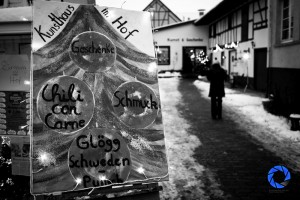 Kunsthaus im Hof
Geschenke
Chili
con
Carne
Schmuck
Glögg
Schweden
- Punsch